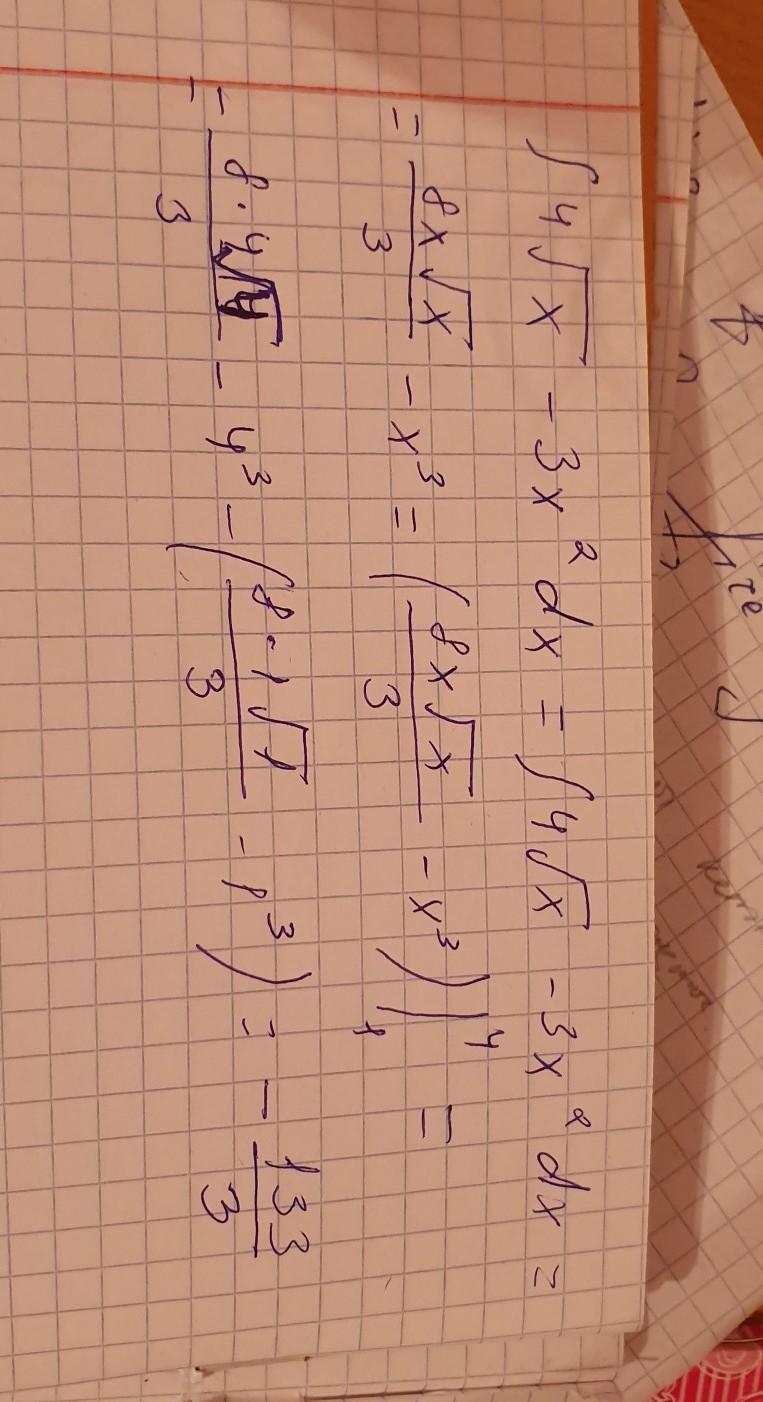 ∫4√x - 3x² dx = ∫4√x - 3x² dx =
= 8x√x/3 - x³ = (8x√x/3 - x³)|₁⁴ =
= 8·4√4/3 - 4³ - (8·1√1/3 - 1³) = - 133/3